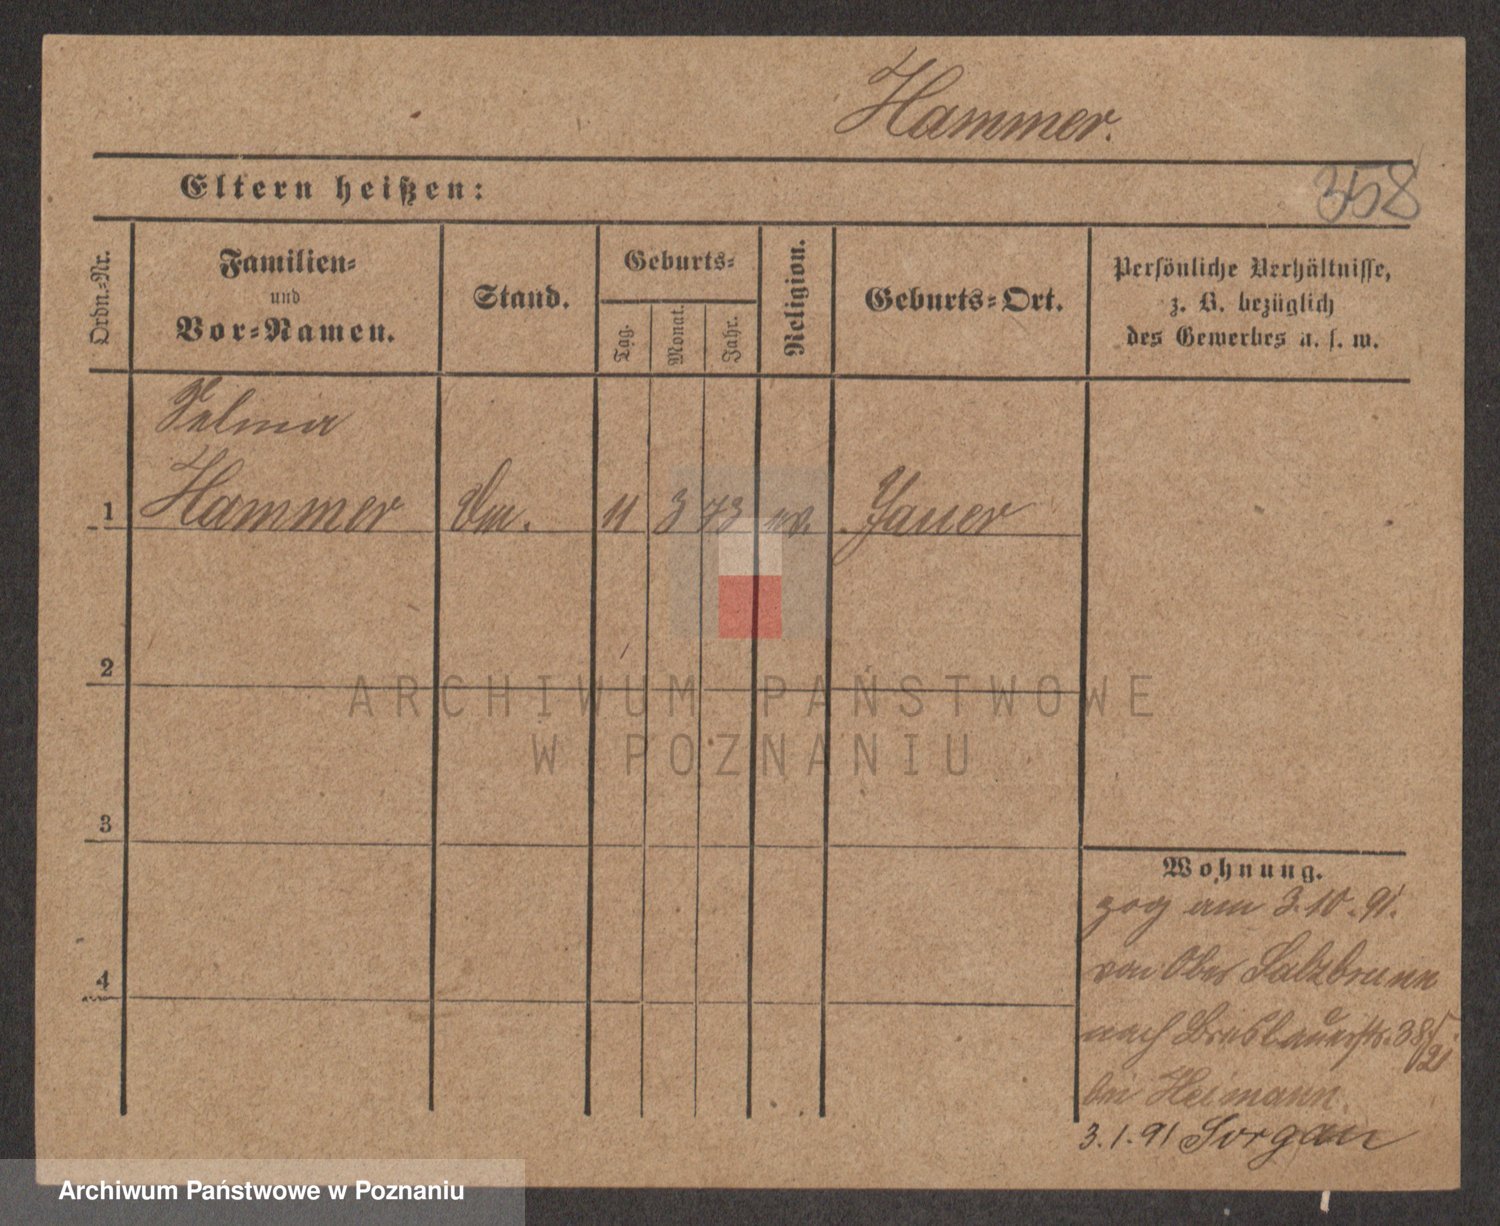 Hammer.
358
Eltern heißen:
Ordn.-Nr.
Familien-
und
Vor-Namen.
Stand.
Geburts-
Tag.
Monat.
Jahr.
Religion.
Geburts-Ort.
Persönliche Verhältnisse,
z. B. bezüglich
des Gewerbes u. s. w.
Selma
1 Hammer 11 3 73 ev. Jauer
2
3
4
Wohnung.
zog am 3.10.91.
von Ober Salzbrunn
nach Breslauerstr. 38
bei Heimann.
3.1.91 Sorgau
ARCHIWUM PAŃSTWOWE
W POZNANIU
Archiwum Państwowe w Poznaniu